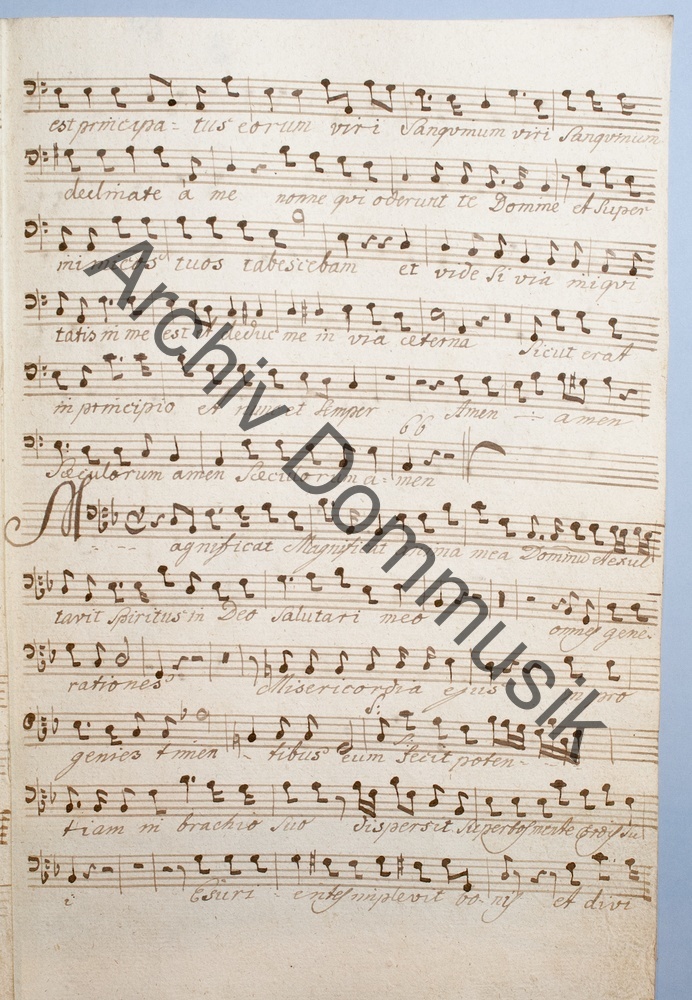 est principa- tus eorum viri Sanqvinum viri Sanqvinum
declinate a me nonne qvi oderunt te Domine et Super
inimicos tuos tabescebam et vide Si via iniqvi
tatis in me est et deduc me in via æterna Sicut erat
in principio et nunc et Semper Amen amen
Sæculorum amen Sæculorum a- men
Magnificat Magnificat anima mea Dominū et exul
tavit Spiritus in Deo Salutari meo omnes gene-
rationes Misericordia ejus in pro
genies timen - tibus eum fecit poten-
tiam in brachio Suo dispersit Superbos mente cordis su
i Esuri - entes implevit bo- nis et divi
Archiv Dommusik